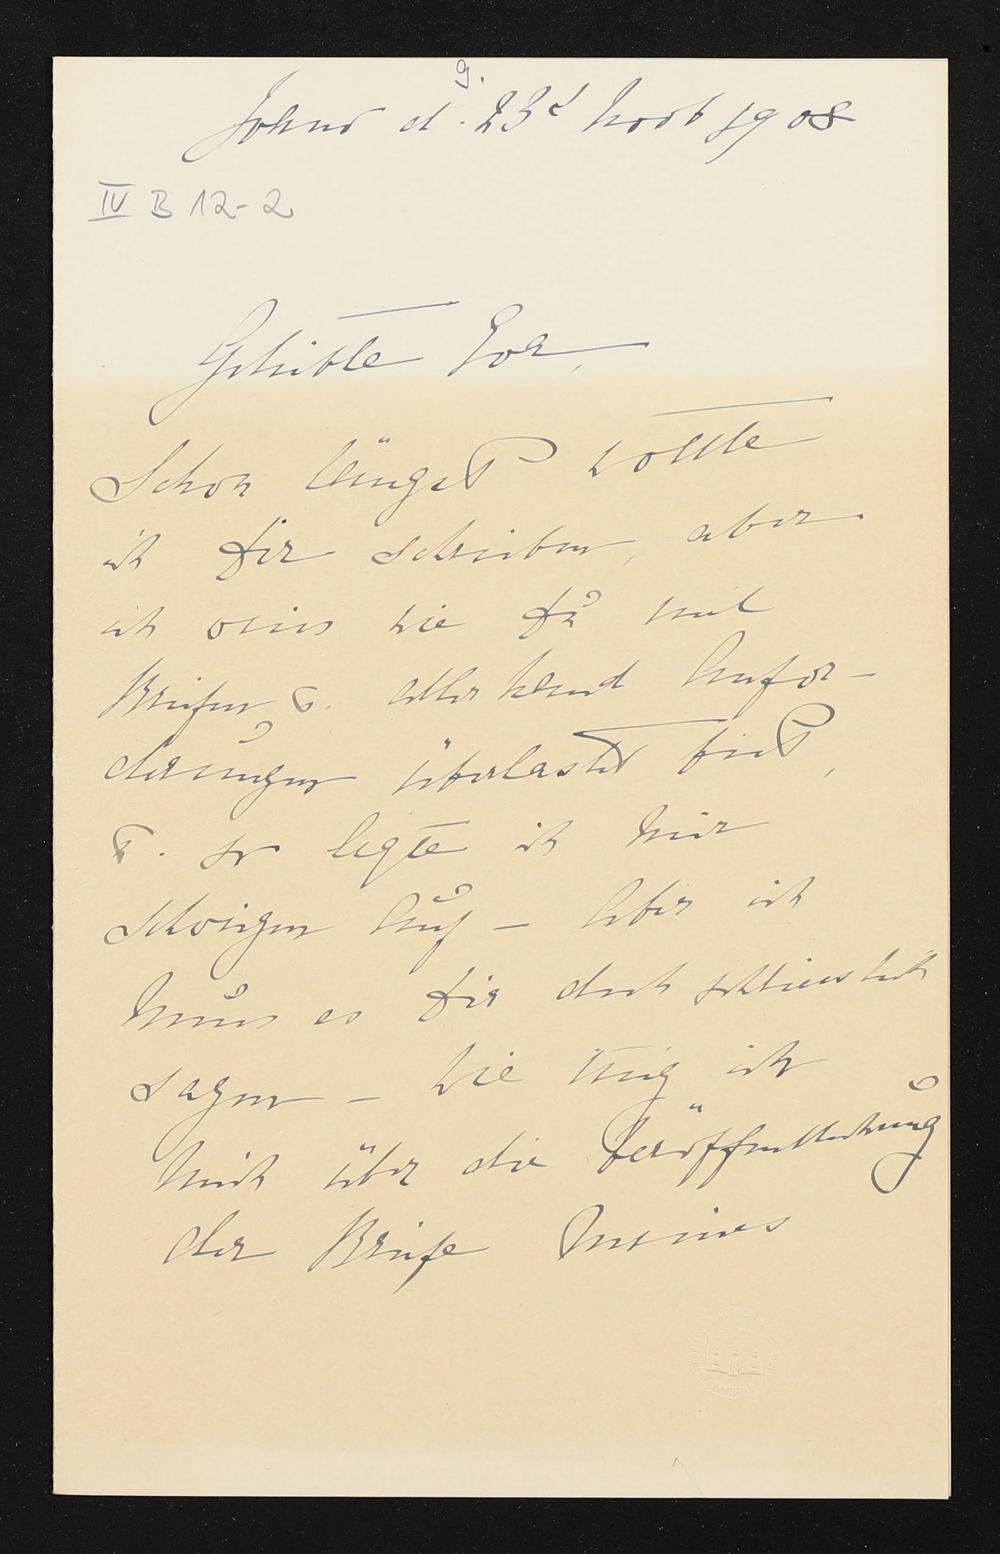 9.
d. 23t Novb 1908
IV B 12-2
Geliebte Eva,
Schon längst wollte
ich Dir schreiben, aber
ich weiss wie Du mit
Briefen u. allerhand Anfor-
derungen überlastet bist,
u. so legte ich mir
schweigen auf – Aber ich
muss es Dir doch schliesslich
sagen – wie ich
mich über die Veröffentlichung
der Briefe meines